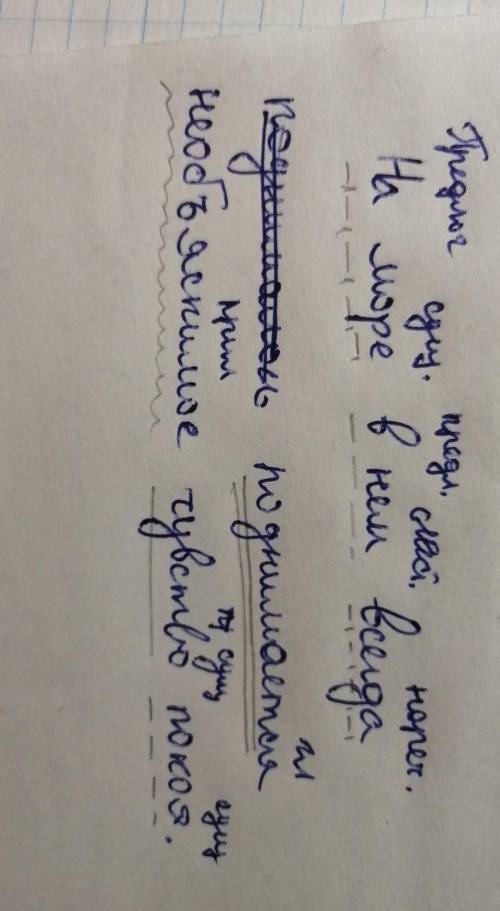 Предлог сущ. предл. мест. нареч.
На море в нем всегда
гл
поднимается
прил сущ сущ
необъяснимое чувство покоя.